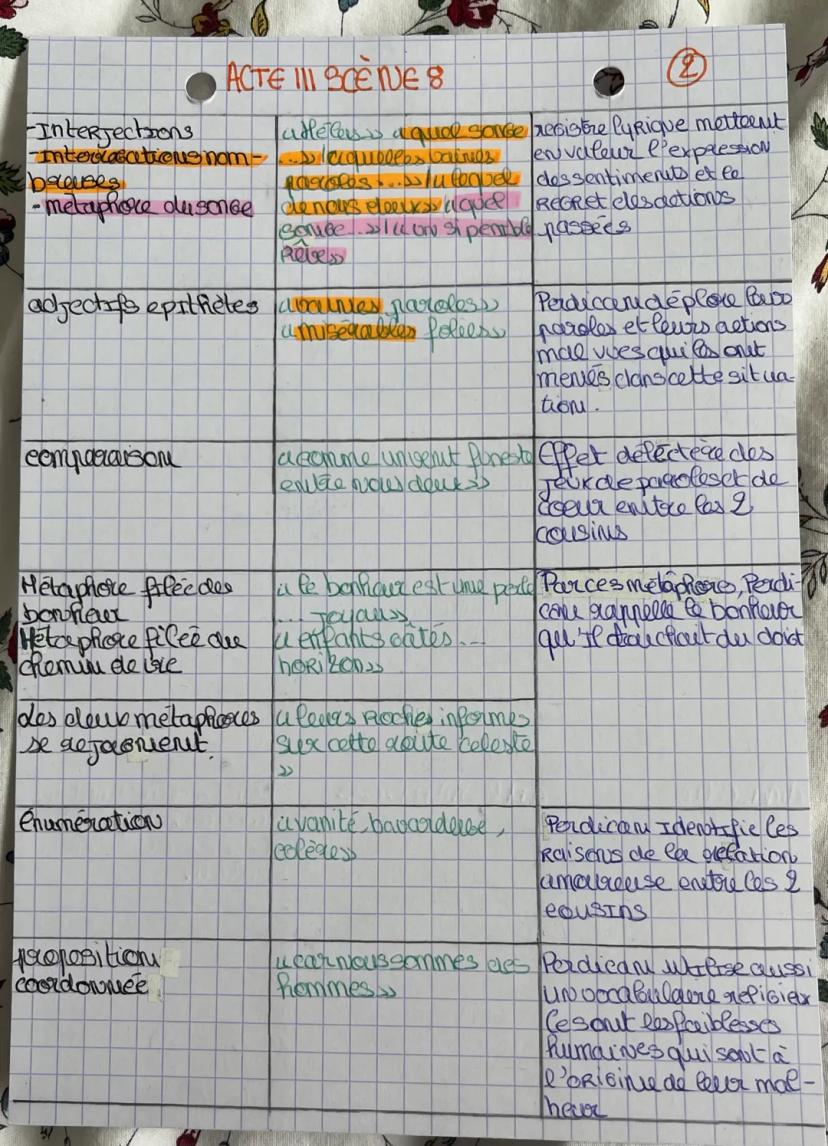 ACTE III SCÈNE 8
2
-Interjections
-Interrogations nom-
breuses
- métaphore du songe
«Hélas» «quel songe
...»/«quelles vaines
paroles...»/«lequel
de nous deux»/«quel
songe...»/«un si pénible
Rêve»
registre lyrique mettent
en valeur l'expression
des sentiments et le
REGRET des actions
passées
adjectifs epithètes
«vaines paroles»
«misérables folies»
Perdican déplore leurs
paroles et leurs actions
mal vues qui les ont
menés dans cette situa-
tion.
comparaison
«comme un vent funeste
entre nous deux»
Effet délectère des
jeux de paroles et de
coeur entre les 2
cousins
Métaphore filée des
bonheur
Métaphore filée du
chemin de vie
« le bonheur est une perle
... joyau»
« enfants gâtés...
horizon»
Par ces métaphores, Perdi-
can rappelle le bonheur
qu'il touchait du doigt
des deux métaphores
se rejoignent.
«leurs Roches informes
sur cette route céleste
»
énumération
«vanité, bavardage,
colère»
Perdican Identifie les
Raisons de la relation
amoureuse entre les 2
cousins
proposition
coordonnée
«car nous sommes des
hommes»
Perdican utilise aussi
un vocabulaire religieux
ce sont les faiblesses
humaines qui sont à
l'ORIGINE de leur mal-
heur